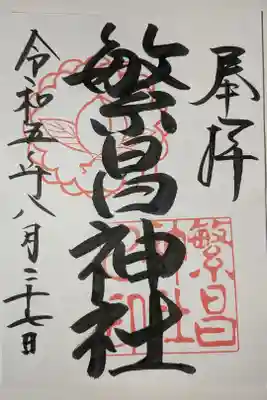 奉拝
繁昌神社
繁昌
神社
令和五年八月二十七日